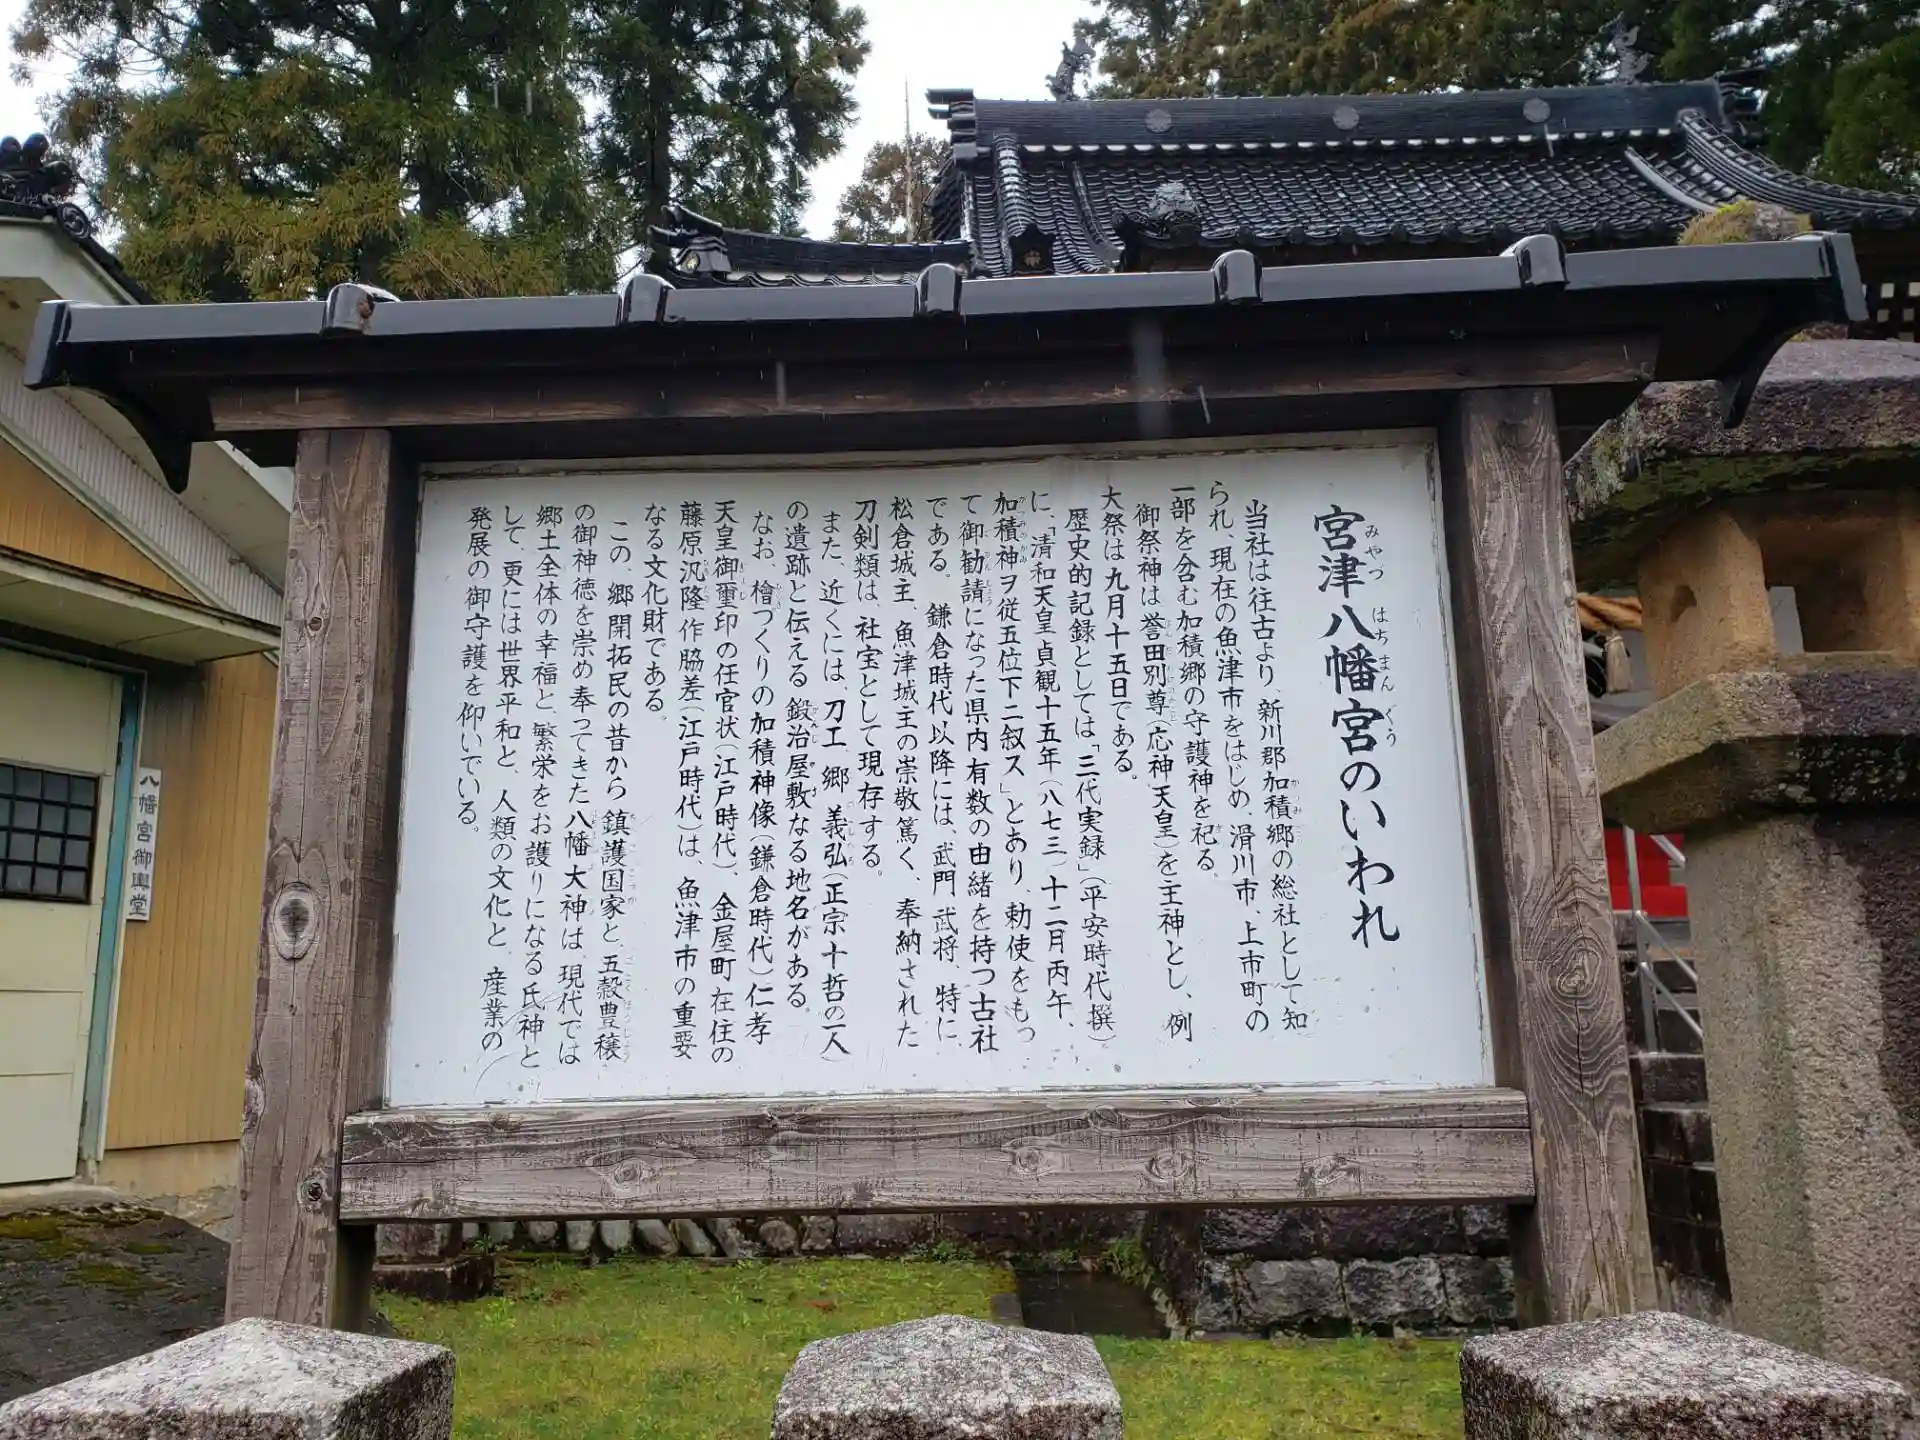 宮津八幡宮のいわれ
当社は往古より、新川郡加積郷の総社として知
られ、現在の魚津市をはじめ、滑川市、上市町の
一部を含む加積郷の守護神を祀る。
御祭神は誉田別尊（応神天皇）を主神とし、例
大祭は九月十五日である。
歴史的記録としては「三代実録」（平安時代撰）
に、「清和天皇貞観十五年（八七三）十二月丙午、
加積神ヲ従五位下二叙ス」とあり、勅使をもっ
て御勧請になった県内有数の由緒を持つ古社
である。鎌倉時代以降には、武門、武将、特に
松倉城主、魚津城主の崇敬篤く、奉納された
刀剣類は、社宝として現存する。
また、近くには、刀工、郷 義弘（正宗十哲の一人）
の遺跡と伝える鍛冶屋敷なる地名がある。
なお、檜づくりの加積神像（鎌倉時代）仁孝
天皇御璽印の任官状（江戸時代）、金屋町在住の
藤原汎隆作脇差（江戸時代）は、魚津市の重要
なる文化財である。
この、郷開拓民の昔から鎮護国家と、五穀豊穣
の御神徳を崇め奉ってきた八幡大神は、現代では
郷土全体の幸福と、繁栄をお護りになる氏神と
して、更には世界平和と、人類の文化と、産業の
発展の御守護を仰いでいる。
八幡宮御輿堂